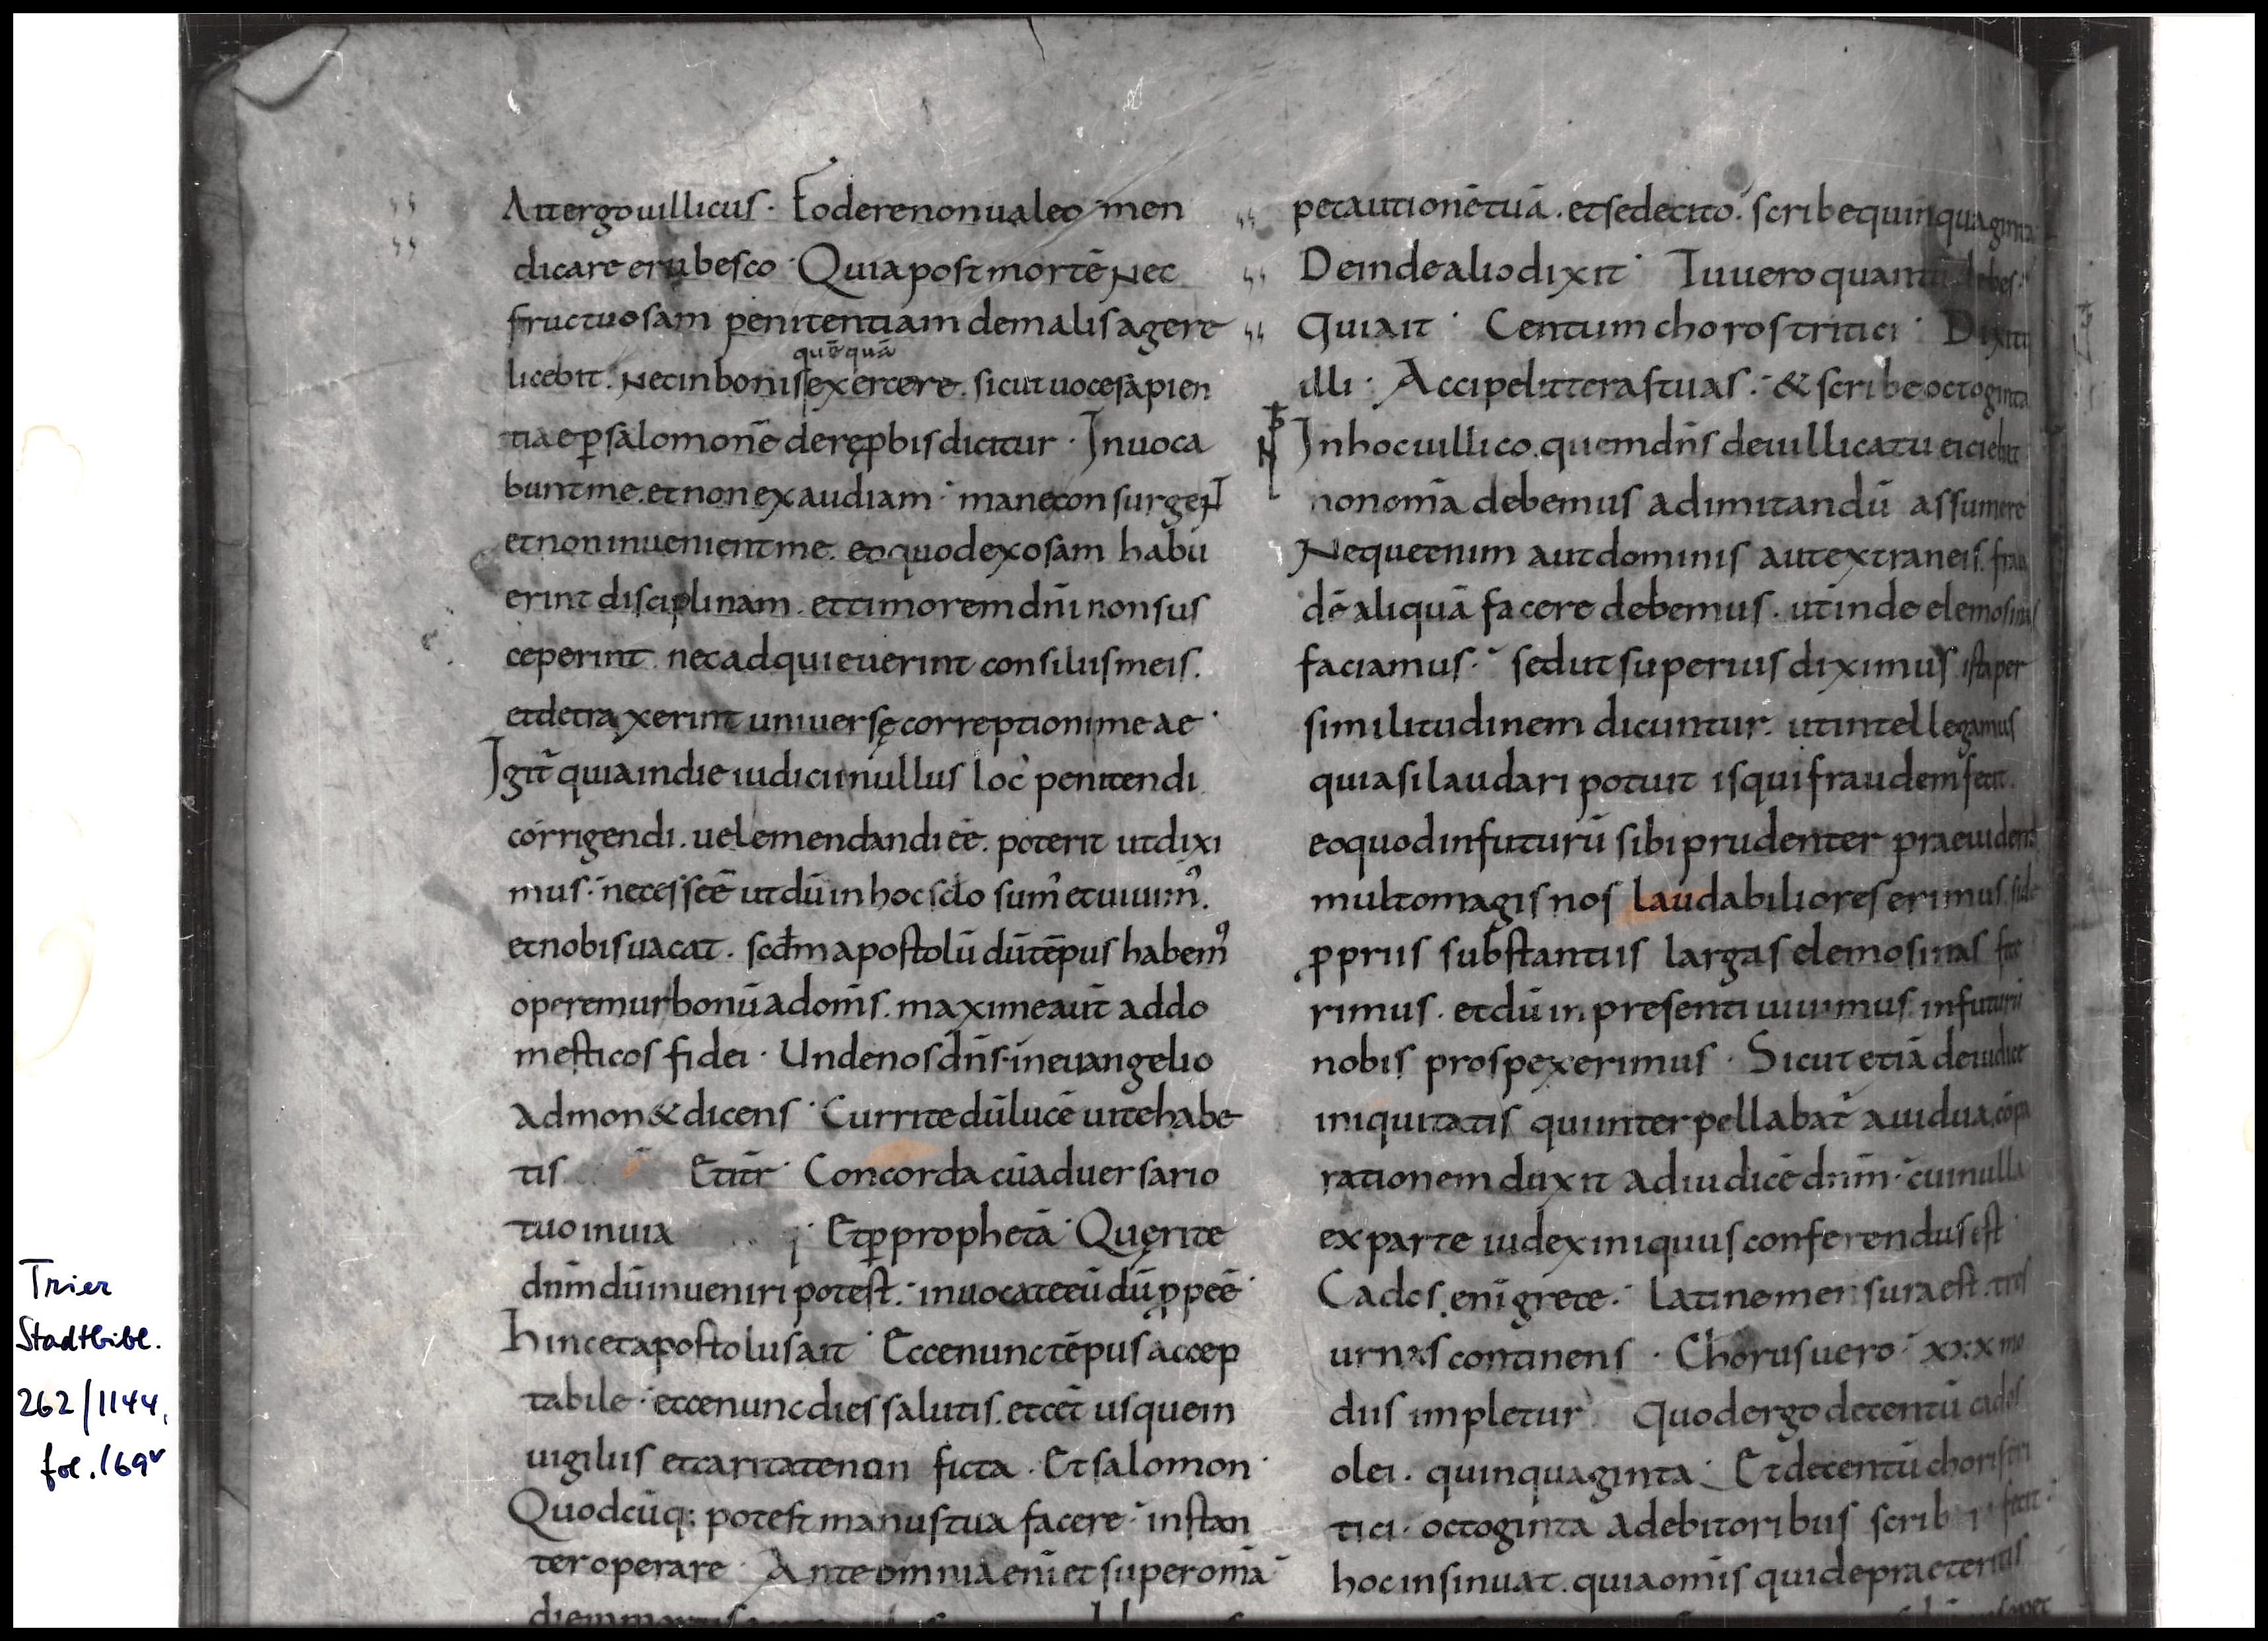 Ait ergo uillicus · Fodere non ualeo men
dicare erubesco · Quia post mortē nec
fructuosam penitentiam de malis agere
quēquā
licebit · nec in bonis exercere · sicut uoce sapien
tiae ꝑ salomonē de reꝓbis dicitur · Inuoca
bunt me · et non exaudiam · mane consurgent
et non inuenient me · eo quod exosam habu
erint disciplinam · et timorem dn̄i non sus
ceperint nec adquieuerint consiliis meis ·
et detraxerint uniuersę correptioni meae ·
Igit̄ quia in die iudicii nullus loc' penitendi
corrigendi · uel emendandi eē · poterit ut dixi
mus · necesse ē ut dū in hoc sclo sum' et uiuim' ·
et nobis uacat · scdm apostolū dū tēpus habem'
operemur bonū ad om̄s · maxime aut̄ ad do
mesticos fidei · Unde nos dn̄s in euangelio
admon& dicens · Currite dū lucē uitę habe
tis Et itr̄ · Concorda cū aduersario
tuo in uia Et ꝑ prophetā · Quęrite
dn̄m dū inueniri potest · inuocate eū dū ꝓpe ē ·
Hinc et apostolus ait · Ecce nunc tēpus accep
tabile · et ecce nunc dies salutis · et cet̄ usque in
uigiliis et caritate non ficta · Et salomon ·
Quodcūq; potest manus tua facere · instan
ter operare · Ante omnia eni et super om̄ia
pe cautionē tuā · et sede cito · scribe quinquaginta
Deinde alio dixit · Tu uero quantū debes ·
Qui ait · Centum choros tritici · Dixit
illi · Accipe litteras tuas · & scribe octoginta
In hoc uillico · quem dn̄s de uillicatu eiciebat
non om̄ia debemus ad imitandū assumere
Neque enim aut dominis aut extraneis frau
dē aliquā facere debemus · ut inde elemosinas
faciamus · sed ut superius diximus ista per
similitudinem dicuntur · ut intellegamus
quia si laudari potuit is qui fraudem fecit ·
eo quod in futurū sibi prudenter praeuidens
multo magis nos laudabiliores erimus si de
ꝓpriis substantiis largas elemosinas fece
rimus · et dū in presenti uiuimus in futurū
nobis prospexerimus · Sicut etiā de iudice
iniquitatis qui interpellabat̄ a uidua cōpa
rationem duxit ad iudicē dn̄m · cui nulla
ex parte iudex iniquus conferendus est ·
Cados eni grece · latine mensura est tres
urnas continens · Chorus uero · xxx mo
diis impletur · Quod ergo de centū cados
olei · quinquaginta · Et de centū choris tri
tici · octoginta a debitoribus scribi fecit ·
hoc insinuat · quia om̄is qui de praeteritis
Trier
Stadtbibl.
262/1144,
fol. 169v